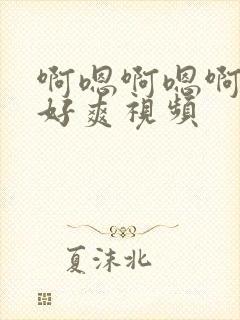 啊嗯啊嗯啊
好爽視頻
夏沫北